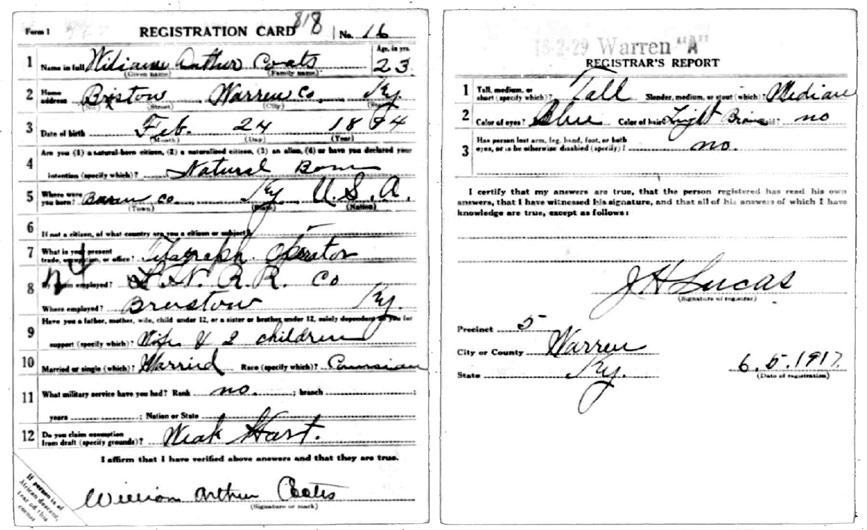 Form 1
REGISTRATION CARD 818 No. 16
1 Name in full Wiliiame Arthur Coats Age, in yrs. 23
(Given name) (Family name)
2 Home address Bristow Warren Co Ky.
(No.) (Street) (City) (State)
3 Date of birth Feb. 24 18 94
(Month) (Day) (Year)
4 Are you (1) a natural-born citizen, (2) a naturalized citizen, (3) an alien, (4) or have you declared your
intention (specify which)? Natural Born
5 Where were you born? Baren Co Ky U.S.A.
(Town) (State) (Nation)
6 If not a citizen, of what country are you a citizen or subject? —
7 What is your present trade, occupation, or office? Telegraph Operator
8 By whom employed? L. N. R. R. Co
Where employed? Brustow Ky.
9 Have you a father, mother, wife, child under 12, or a sister or brother under 12, solely dependent on you for
support (specify which)? Wife & 2 children
10 Married or single (which)? Married Race (specify which)?
11 What military service have you had? Rank no. ; branch
years ; Nation or State
12 Do you claim exemption from draft (specify grounds)? Weak Hart.
I affirm that I have verified above answers and that they are true.
William Arthur Coates
(Signature or mark)
If person is of African descent, tear off this corner
Warren "A"
REGISTRAR'S REPORT
1 Tall, medium, or short (specify which)? Tall Slender, medium, or stout (which)?
2 Color of eyes? Blue Color of hair? Light Brown no
3 Has person lost arm, leg, hand, foot, or both eyes, or is he otherwise disabled (specify)? no.
I certify that my answers are true, that the person registered has read his own
answers, that I have witnessed his signature, and that all of his answers of which I have
knowledge are true, except as follows:
J H Lucas
(Signature of registrar)
Precinct 5
City or County Warren
State Ky.
6.5.1917.
(Date of registration)